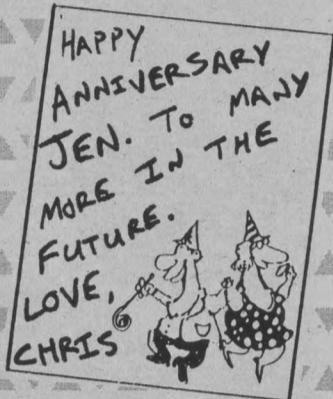 HAPPY
ANNIVERSARY
JEN. TO MANY
MORE IN THE
FUTURE.
LOVE,
CHRIS